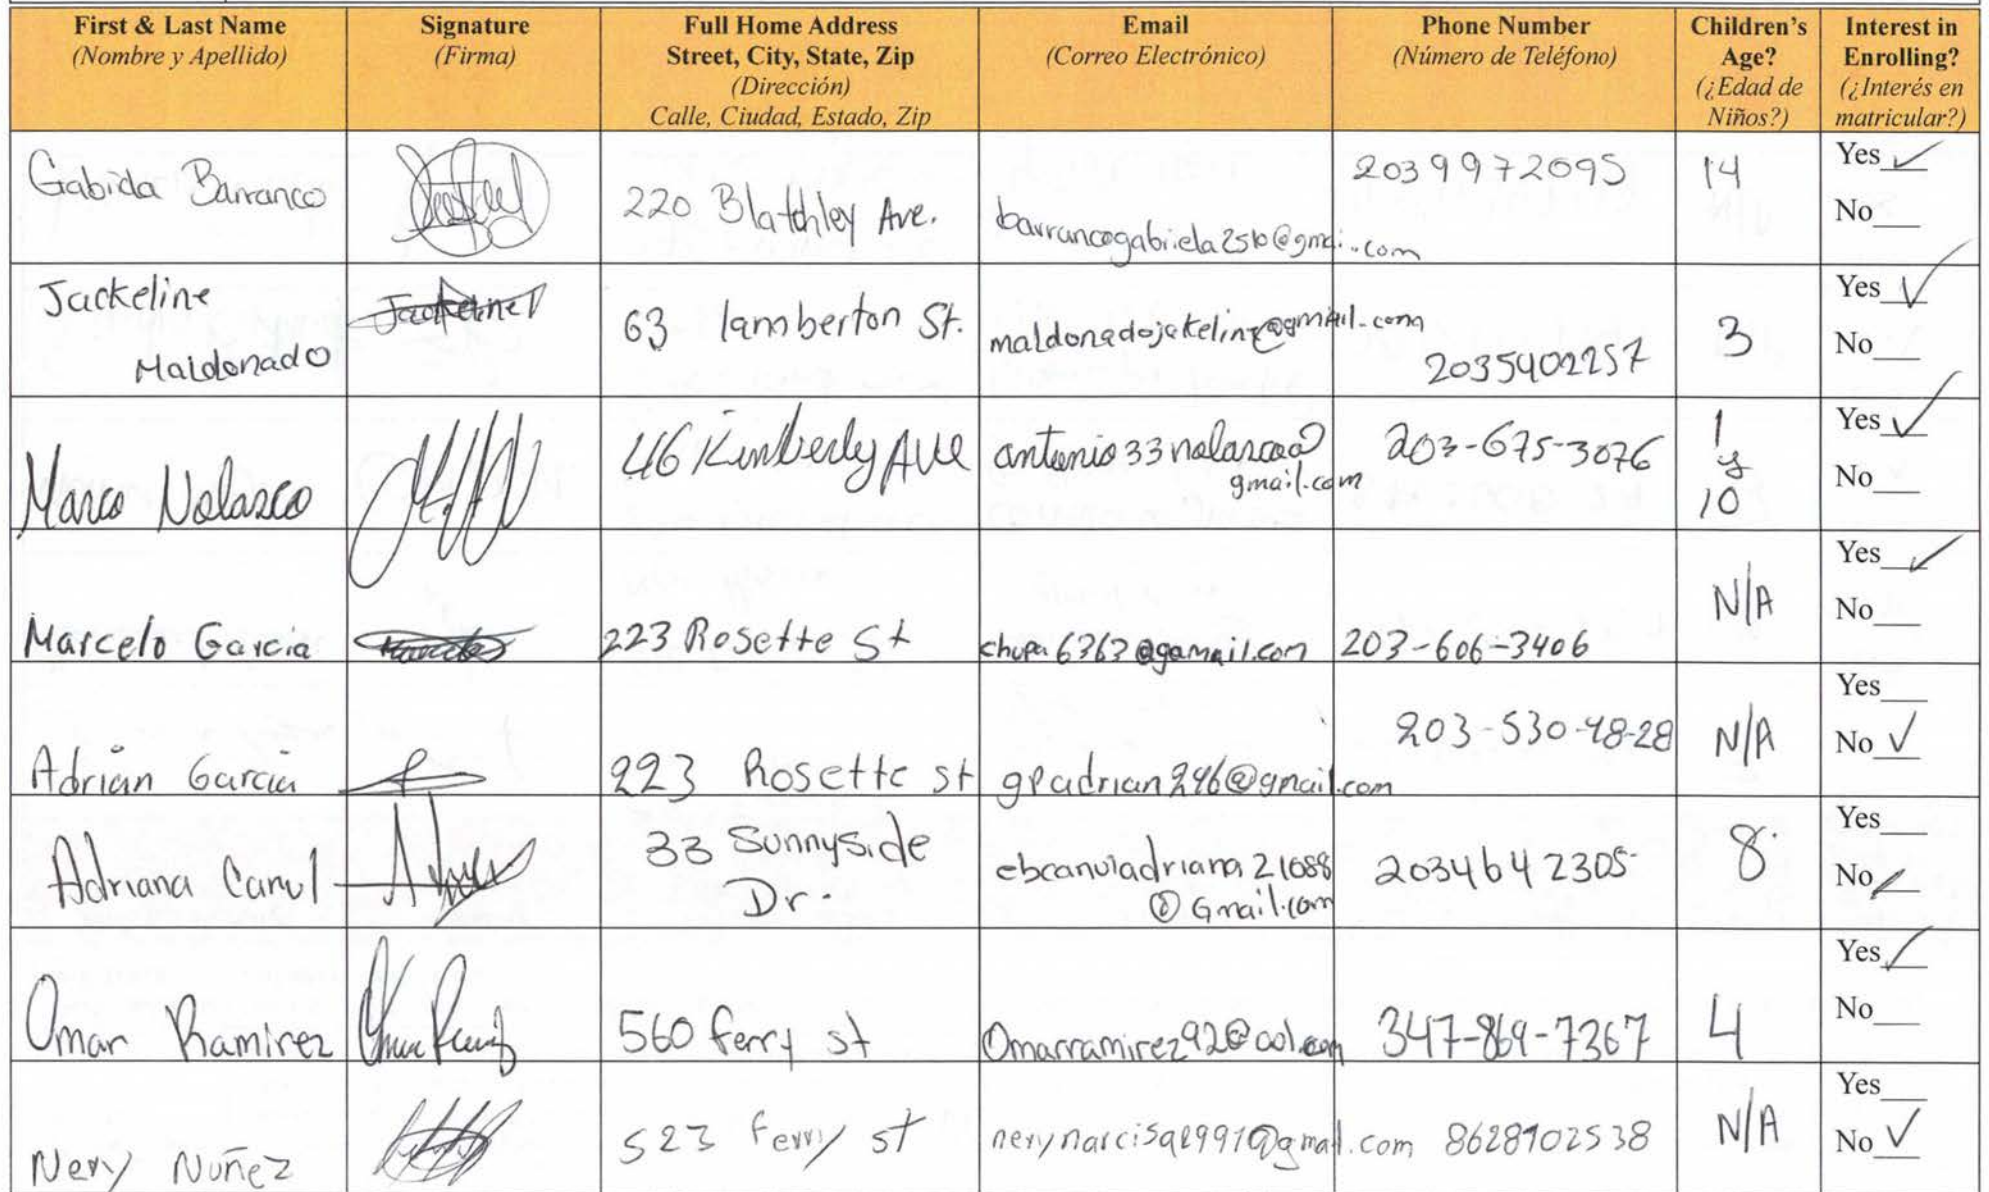 First & Last Name
(Nombre y Apellido)
Signature
(Firma)
Full Home Address
Street, City, State, Zip
(Dirección)
Calle, Ciudad, Estado, Zip
Email
(Correo Electrónico)
Phone Number
(Número de Teléfono)
Children's
Age?
(¿Edad de
Niños?)
Interest in
Enrolling?
(¿Interés en
matricular?)
Gabiela Barranco
220 Blatchley Ave.
barrancogabriela2510@gmai..com
2039972095
14
Yes ✓
No
Jackeline
Maldonado
Jackeline
63 lamberton St.
maldonadojakeline@gmail.com
2035402257
3
Yes ✓
No
Marco Nolasco
46 Kimberly AVE
antonio33nolasco@
gmail.com
203-675-3076
1
y
10
Yes ✓
No
Marcelo Garcia
223 Rosette St
chupa6363@gamail.com
203-606-3406
N/A
Yes ✓
No
Adrian Garcia
223 Rosette st
gpadrian246@gmail.com
203-530-48-28
N/A
Yes
No ✓
Adriana Canul
33 Sunnyside
Dr.
ebcanuladriana21088
@Gmail.com
2034642305
8
Yes
No ✓
Omar Ramirez
560 ferry st
Omarramirez92@aol.com
347-869-7367
4
Yes ✓
No
Nery Nuñez
523 ferry st
8628902538
N/A
Yes
No ✓